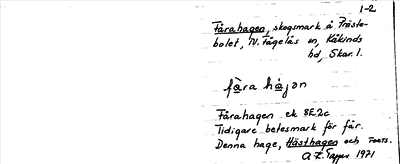 1-2
Fårahagen, skogsmark å Präste-
bolet, N. Fågelås sn, Kåkinds
hd, Skar. l.
fåra hàgɔn
Fårahagen ek 8E2c
Tidigare betesmark för får.
Denna hage, Hästhagen och
1971